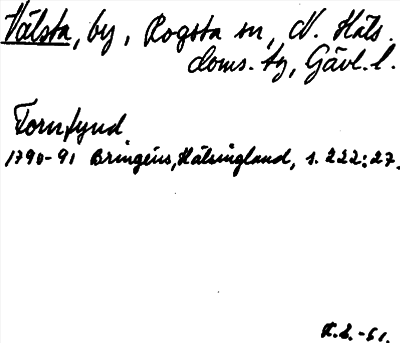 Välsta, by, Rogsta sn, N. Häls.
doms. tg, Gävl. l.
Fornfynd
1790-91 Bringéus, Hälsingland, s. 222:27.
K.E.-61.